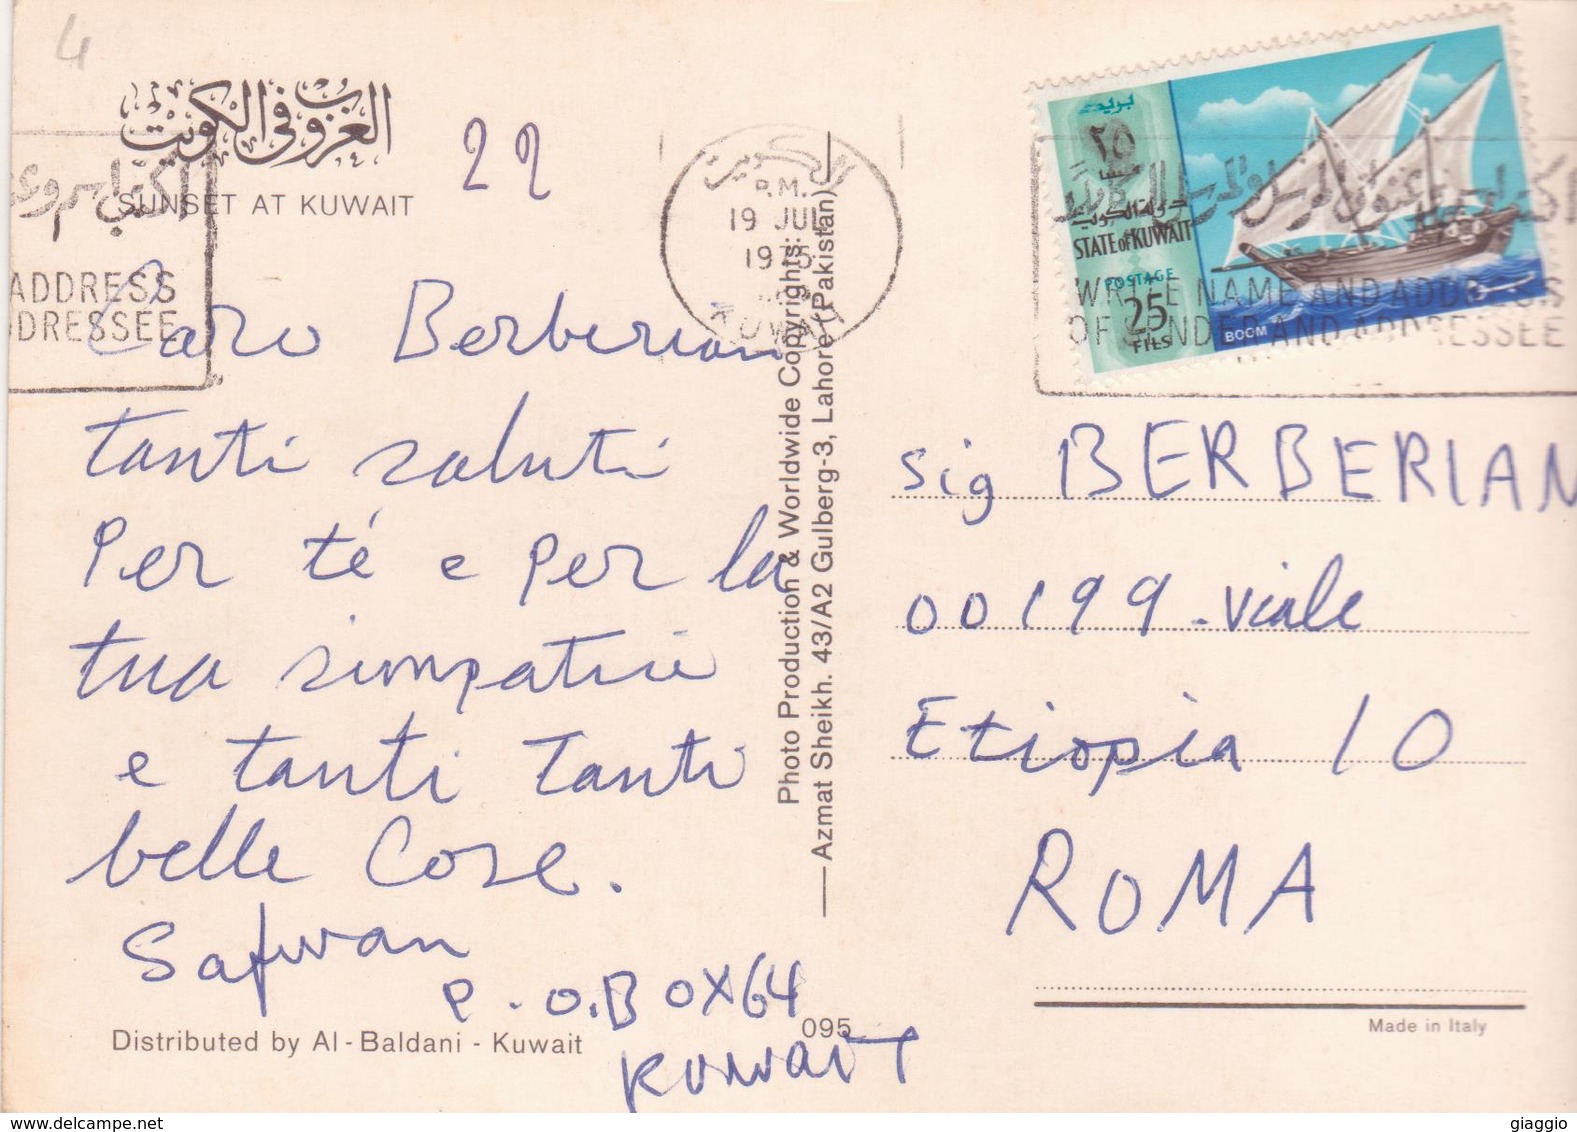 4
الغروب في الكويت
SUNSET AT KUWAIT
22
ADDRESS
DRESSEE
Caro Berberian
tanti saluti
Per té e per la
tua simpatie
e tanti Tanti
belle Cose.
Safwan
P.O.BOX 64
Kuwait
Distributed by Al-Baldani - Kuwait
095
Photo Production & Worldwide Copyrights:
Azmat Sheikh. 43/A2 Gulberg-3, Lahore (Pakistan)
الكويت
P.M.
19 JUL
1975
KUWAIT
بريد
٢٥
فلسا
دولة الكويت
STATE OF KUWAIT
POSTAGE
25
FILS
BOOM
WRITE NAME AND ADDRESS
OF SENDER AND ADDRESSEE
sig BERBERIAN
00199 - Viale
Etiopia 10
ROMA
Made in Italy
giaggio
delcampe.net